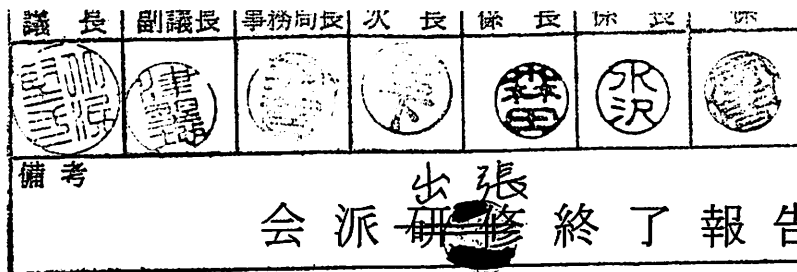 議長 副議長 事務局長 次長 係長 係長 係
森田 水沢
備考
出張
会派研修終了報告